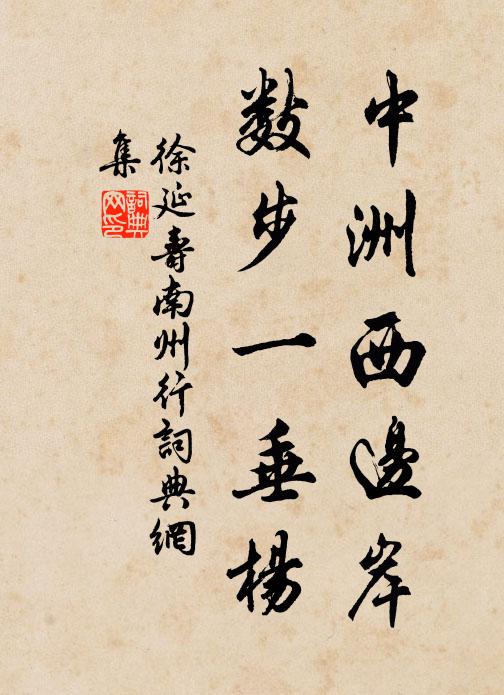 中洲西邊岸
數步一垂楊
徐延壽南州行詞典網
集
詞典網印